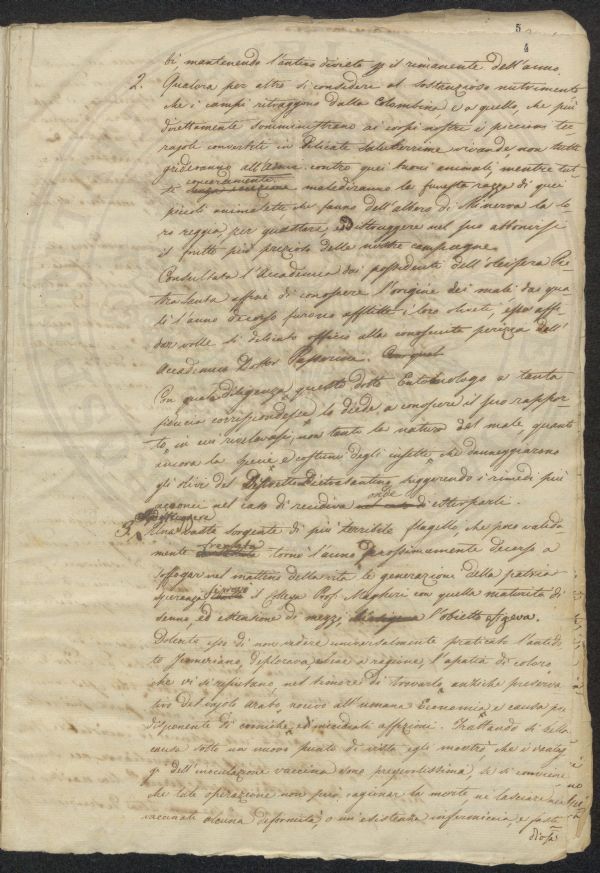 5
4
bi, mantenendo l'antico divieto pel rimanente dell'anno
2. Qualora per altro si consideri al sostanzioso nutrimento
che i campi ritraggono dalla Colombina e a quello, che più
direttamente somministrano ai corpi nostri i piccioni ter-
rajoli convertiti in delicate saluberrime vivande, non tutti
grideranno all'armi contro quei buoni animali, mentre tut-
concordemente
ti malediranno la funesta razza di quei
piccoli animaletti che fanno dell'albero di Minerva la lo-
ro reggia, per guastare e distruggere nel suo
il frutto più prezioso delle nostre campagne.
Consultata l'Accademia dai possidenti dell'oleifera Pie-
tra Santa affine di conoscere l'origine dei mali, da' qua-
li l'anno decorso furono afflitti i loro oliveti, essa affi-
dar volle sì delicato officio alla conosciuta perizia dell'
Accademico Dottor Passerini.
Con quale diligenza questo dotto Entomologo a tanta
fiducia corrispondesse lo diede a conoscere il suo rappor-
to, in cui rivelavasi, non tanto la natura del male quanto
ancora la specie e costumi degli insetti che danneggiarono
gli olivi del Distretto Pietrasantino, suggerendo i rimedi più
acconci nel caso di recidiva onde esterparli.
3. Una vasta sorgente di più terribile flagello, che poco valida-
mente frenata torna l'anno prossimamente decorso a
soffogar nel mattino della vita la generazione della patria
speranza il Collega Prof. Magheri con quella maturità di
senno, ed estensione di mezzi, l'obietto esigeva.
Dolente esso di non vedere universalmente praticato l'antido-
to Jenneriano, deplorava, e a ragione, l'apatia di coloro,
che vi si rifiutano, nel timore di trovarlo, anziché preserva-
tivo del vajolo arabo, nocivo all'umana Economia, e causa pre-
disponente di croniche, ed micidiali affezioni. Trattando di bella
causa sotto un nuovo punto di vista egli mostrò che i vantag-
gi dell'inoculazione vaccina sono pregevolissimi, se si conviene
che tale operazione non può cagionar la morte, né lasciare nei
vaccinati alcuna deformità, o un'esistenza infermiccia, e fasti-
diosa